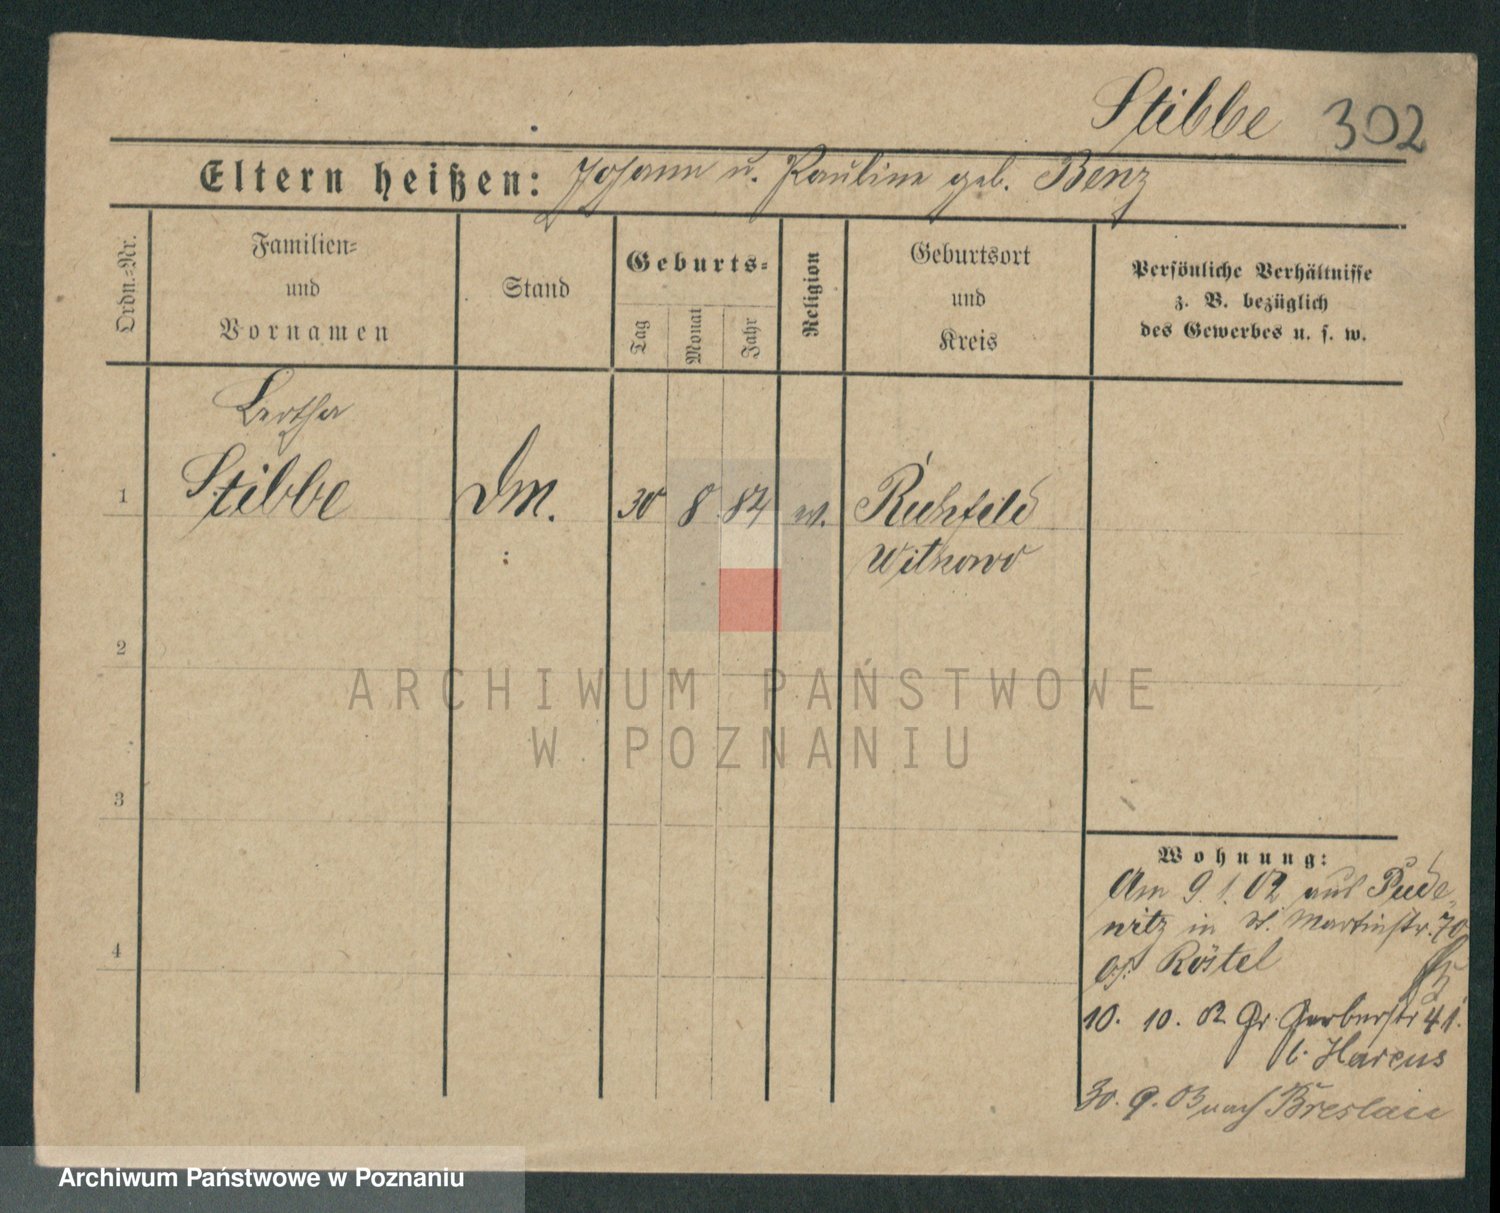 Stibbe 302
Eltern heißen: Johann u. Pauline geb. Benz
Ordn.=Nr.
Familien=
und
Vornamen
Stand
Geburts=
Tag
Monat
Jahr
Religion
Geburtsort
und
Kreis
Persönliche Verhältnisse
z. B. bezüglich
des Gewerbes u. s. w.
Bertha
1 Stibbe Dm. 30 8 84 ev. Richfeld
Witkowo
2
ARCHIWUM PAŃSTWOWE
W POZNANIU
3
Wohnung:
Am 9.1.02 aus Pude-
4
witz in St. Martinstr. 70
bei Röstel
10. 10. 02 Gr. Gerberstr 41.
b. Marcus
30. 9. 03 nach Breslau
Archiwum Państwowe w Poznaniu